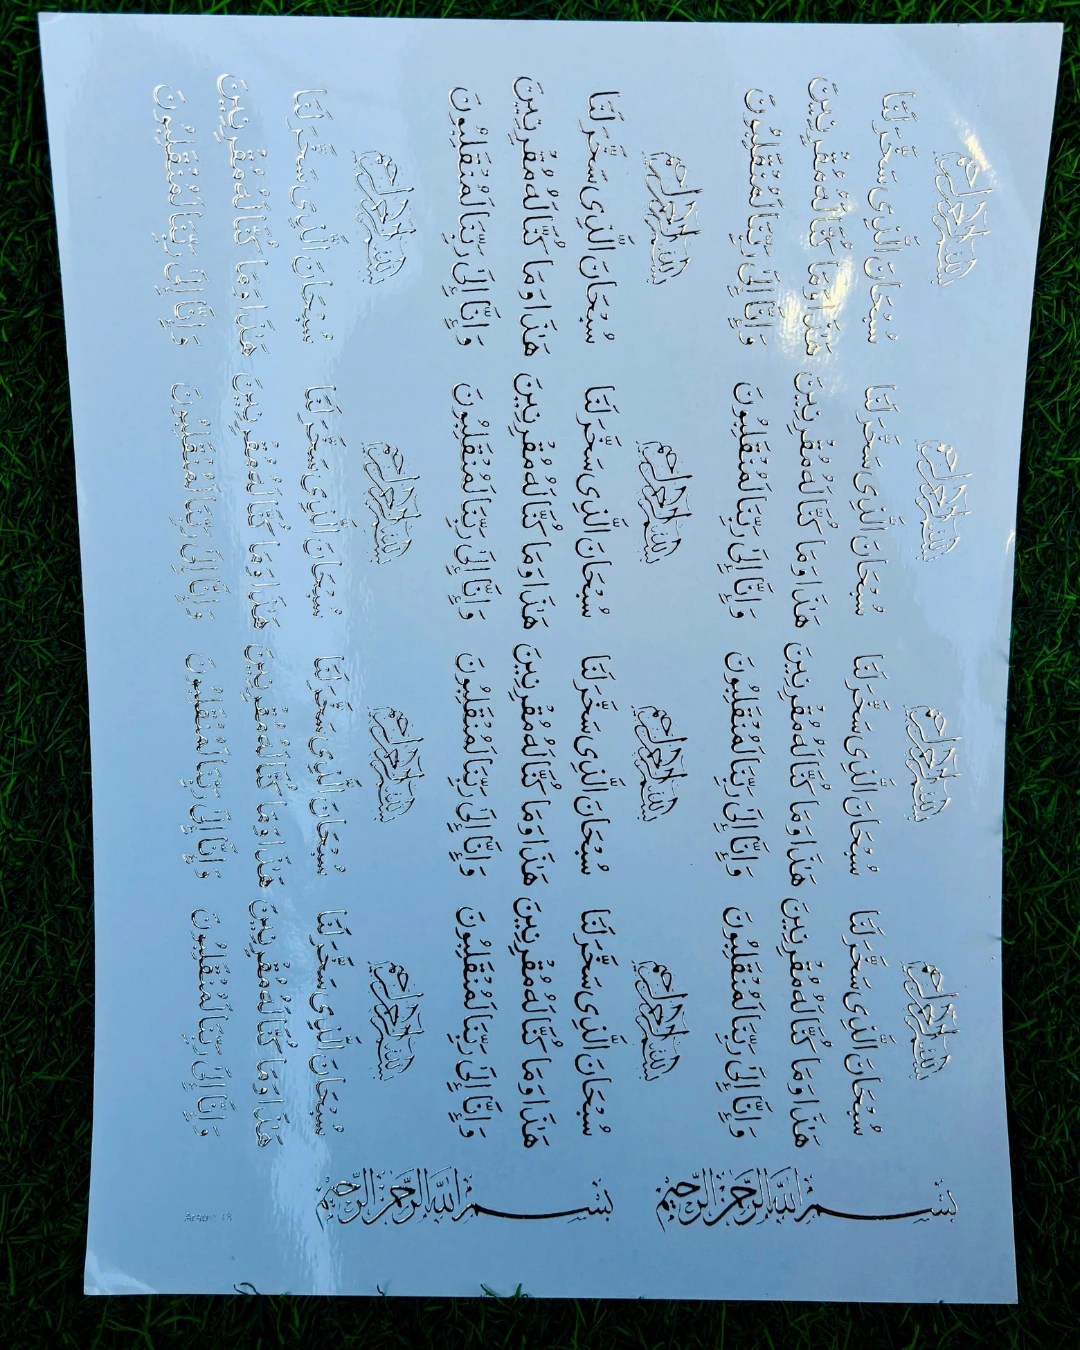 بسم الله الرحمن الرحيم
سُبْحَانَ الَّذِي سَخَّرَ لَنَا
هَٰذَا وَمَا كُنَّا لَهُ مُقْرِنِينَ
وَإِنَّا إِلَىٰ رَبِّنَا لَمُنْقَلِبُونَ
بسم الله الرحمن الرحيم
سُبْحَانَ الَّذِي سَخَّرَ لَنَا
هَٰذَا وَمَا كُنَّا لَهُ مُقْرِنِينَ
وَإِنَّا إِلَىٰ رَبِّنَا لَمُنْقَلِبُونَ
بسم الله الرحمن الرحيم
سُبْحَانَ الَّذِي سَخَّرَ لَنَا
هَٰذَا وَمَا كُنَّا لَهُ مُقْرِنِينَ
وَإِنَّا إِلَىٰ رَبِّنَا لَمُنْقَلِبُونَ
بسم الله الرحمن الرحيم
سُبْحَانَ الَّذِي سَخَّرَ لَنَا
هَٰذَا وَمَا كُنَّا لَهُ مُقْرِنِينَ
وَإِنَّا إِلَىٰ رَبِّنَا لَمُنْقَلِبُونَ
بسم الله الرحمن الرحيم
سُبْحَانَ الَّذِي سَخَّرَ لَنَا
هَٰذَا وَمَا كُنَّا لَهُ مُقْرِنِينَ
وَإِنَّا إِلَىٰ رَبِّنَا لَمُنْقَلِبُونَ
بسم الله الرحمن الرحيم
سُبْحَانَ الَّذِي سَخَّرَ لَنَا
هَٰذَا وَمَا كُنَّا لَهُ مُقْرِنِينَ
وَإِنَّا إِلَىٰ رَبِّنَا لَمُنْقَلِبُونَ
بسم الله الرحمن الرحيم
سُبْحَانَ الَّذِي سَخَّرَ لَنَا
هَٰذَا وَمَا كُنَّا لَهُ مُقْرِنِينَ
وَإِنَّا إِلَىٰ رَبِّنَا لَمُنْقَلِبُونَ
بسم الله الرحمن الرحيم
سُبْحَانَ الَّذِي سَخَّرَ لَنَا
هَٰذَا وَمَا كُنَّا لَهُ مُقْرِنِينَ
وَإِنَّا إِلَىٰ رَبِّنَا لَمُنْقَلِبُونَ
بسم الله الرحمن الرحيم
سُبْحَانَ الَّذِي سَخَّرَ لَنَا
هَٰذَا وَمَا كُنَّا لَهُ مُقْرِنِينَ
وَإِنَّا إِلَىٰ رَبِّنَا لَمُنْقَلِبُونَ
بسم الله الرحمن الرحيم
سُبْحَانَ الَّذِي سَخَّرَ لَنَا
هَٰذَا وَمَا كُنَّا لَهُ مُقْرِنِينَ
وَإِنَّا إِلَىٰ رَبِّنَا لَمُنْقَلِبُونَ
بسم الله الرحمن الرحيم
سُبْحَانَ الَّذِي سَخَّرَ لَنَا
هَٰذَا وَمَا كُنَّا لَهُ مُقْرِنِينَ
وَإِنَّا إِلَىٰ رَبِّنَا لَمُنْقَلِبُونَ
بسم الله الرحمن الرحيم
سُبْحَانَ الَّذِي سَخَّرَ لَنَا
هَٰذَا وَمَا كُنَّا لَهُ مُقْرِنِينَ
وَإِنَّا إِلَىٰ رَبِّنَا لَمُنْقَلِبُونَ
بِسْمِ اللَّهِ الرَّحْمَٰنِ الرَّحِيمِ
بِسْمِ اللَّهِ الرَّحْمَٰنِ الرَّحِيمِ
Arabic 18